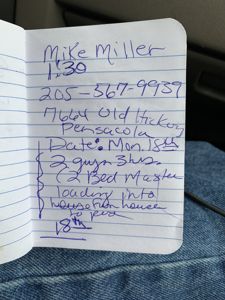 Mike Miller
1:30
205-567-9939
7664 Old Hickory
Pensacola
Date: Mon. 18th
2 guys 3 hrs.
(2 Bed Master
loading into
house from house
to
18th